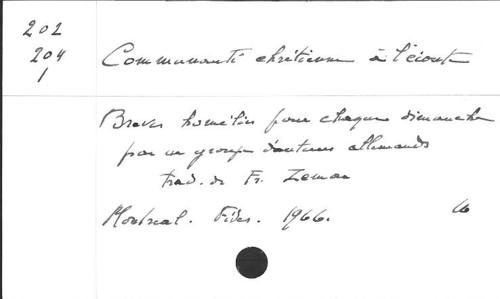 202
204
1
Communauté chrétienne à l'écoute
Brèves homélies pour chaque dimanche
par un groupe d'auteurs allemands
trad. de Fr. Zeman
Montréal. Fides. 1966.